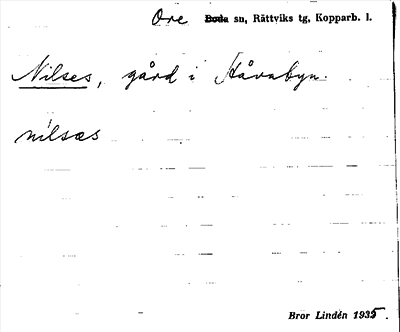 Ore Boda sn, Rättviks tg, Kopparb. l.
Nilses, gård i Håvabyn.
nilsæs
Bror Lindén 1935.